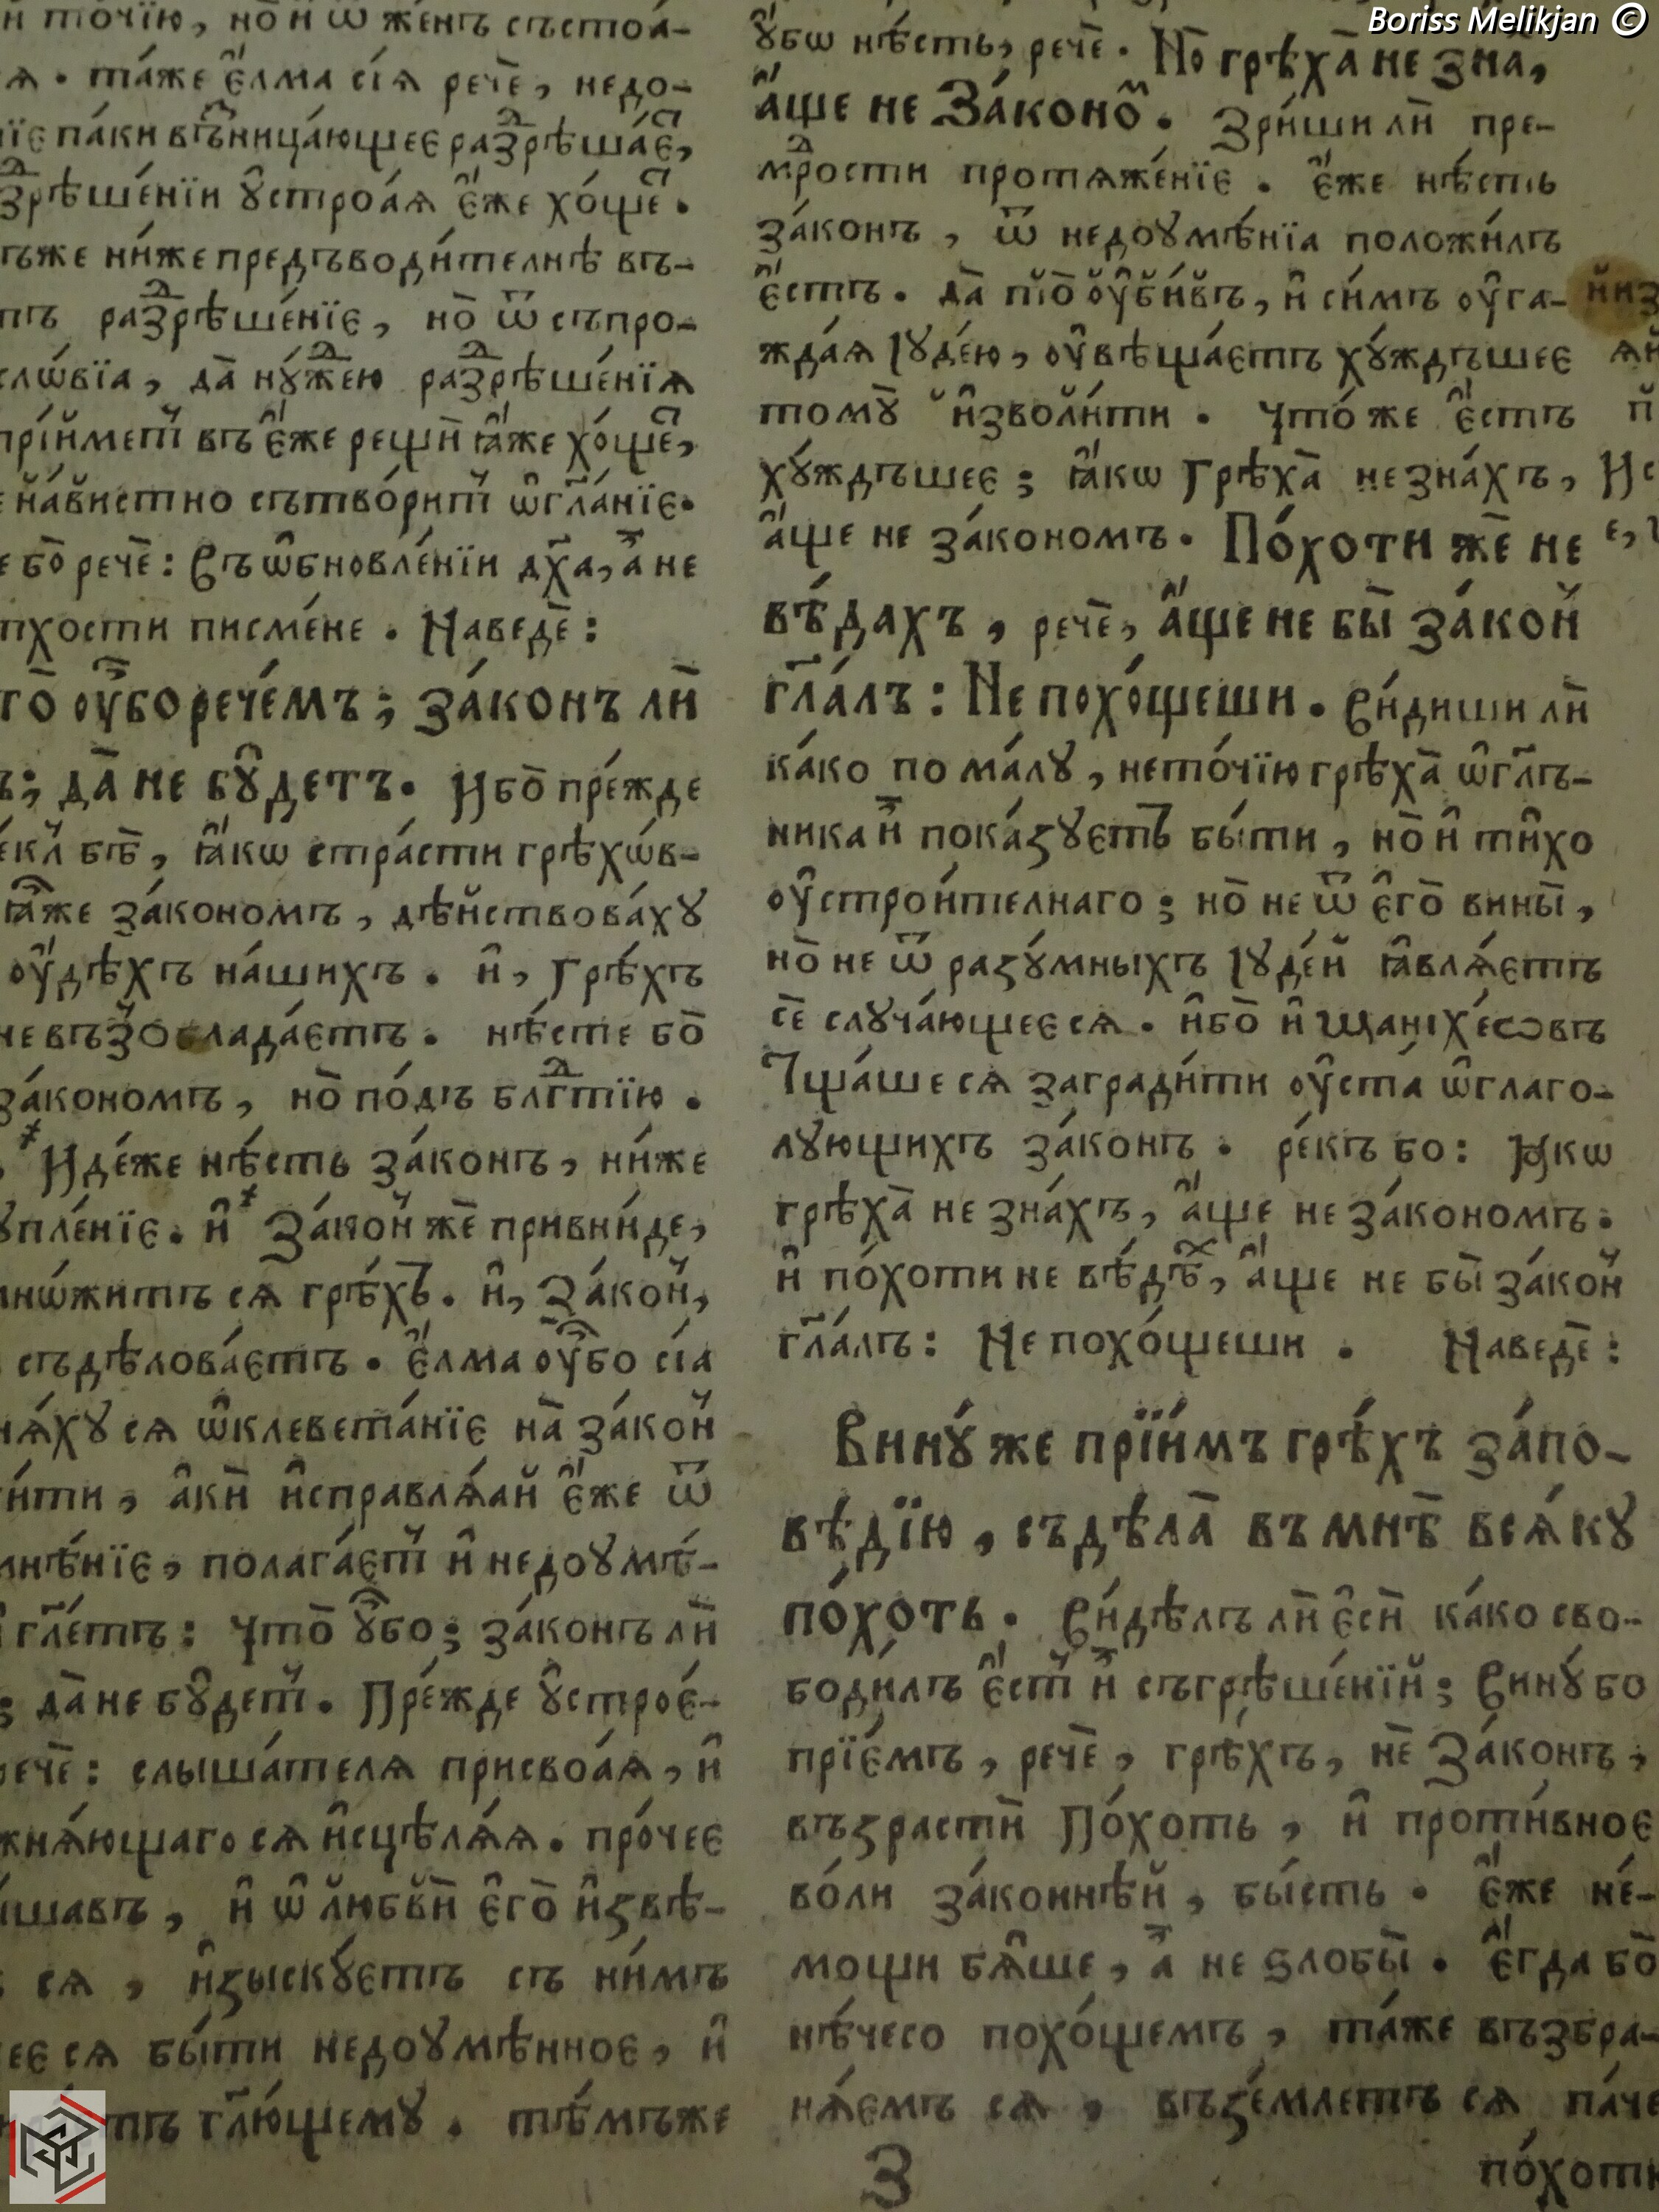 Boriss Melikjan ©
и҆ то́чїю, но̀ и҆ ѿ же́нъ състоѧ́-
ѧ. та́же є҆́лма сі́ѧ речѐ, недо-
їе па́ки въⷣницающее раⷥрѣша́еⷭ҇,
зⷣрѣше́нїи ᲂу҆строа́ѧ є҆́же хо́щеⷭ҇.
ъже ни́же предъводи́телнѣ въ-
пъ раⷥрѣше́нїе, но̀ ѿ съпро-
сло́вїа, да̀ нꙋ́жⷣею раⷥрѣше́нїѧ
прїи́метъ̾ въ є҆́же рещѝ ꙗ҆́же хо́щеⷭ҇,
ена́вистно сътво́ритъ̾ ѡ҆гл҃а́нїе.
е бо̀ речѐ: Въ ѡ҆бновле́нїи дх҃а, а҆̀ не
тхости писме́не. Наведѐ:
то̀ ᲂу҆̀бо рече́мъ; за́конъ лѝ
ъ; да̀ не бꙋ҆́детъ. Ибо̀ пре́жде
е́клъ̾ бѣ̀, ꙗ҆́кѡ стра́сти грѣхѡ́в-
ꙗ҆̀же за́кономъ, дѣ́йствова́хꙋ
ᲂу҆́дѣхъ на́шихъ. и҆, Грѣ́хъ
не въз̾ѻбладáетъ. нѣ́сте бо̀
за́кономъ, но̀ по́дъ бл҃гⷣтїю.
Иде́же нѣ́сть за́конъ, ни́же
ꙋпле́нїе. и҆ За́конъ̾ жѐ привни́де,
мнѡ́житъ сѧ̀ грѣ́хъ̾. и҆, За́конъ̾,
съдѣлова́етъ. є҆́лма ᲂу҆̀бо сі́а
нѧ́хꙋ сѧ ѡ҆клевета́нїе на̀ за́конъ̾
и́ти, а҆кѝ и҆справлѧ́ай є҆́же ѿ
мнѣ́нїе, полага́етъ̾ и҆ недоꙋмѣ́-
гл҃е́тъ: Что̀ ᲂу҆́бо; за́конъ лѝ
; да̀ не бꙋ҆́детъ̾. Пре́жде ᲂу҆строе́-
речѐ: слыша́телѧ присвоа́ѧ, и҆
жнѧ́ющаго сѧ и҆сцѣлѧ́ѧ. про́чее
ы́шавъ, и҆ ѡ҆ любвѝ є҆го̀ и҆звѣ-
сѧ, и҆зыскꙋ́етъ съ ни́мъ
ее сѧ бы́ти недоꙋмѣ́нное, и҆
тъ гл҃ю́щемꙋ. тѣ́мъже
ᲂу҆́бѡ нѣ́сть, речѐ. Но̀ грѣха̀ не зна̀,
а҆́ще не За́коноⷨ. Зри́ши лѝ пре-
мⷣрости протѧже́нїе. є҆́же нѣ́сть
за́конъ, ѿ недоꙋмѣ́нїа положи́лъ
є҆́стъ. да̀ то̀ ᲂу҆би́въ, и҆ си́мъ ᲂу҆га-
жда́ѧ Іꙋде́ю, ᲂу҆вѣща́етъ хꙋ́ждъшее
томꙋ̀ и҆зволи́ти. Что́ же є҆́стъ
хꙋ́ждъшее; ꙗ҆́кѡ Грѣха̀ не зна́хъ,
а҆́ще не за́кономъ. По́хоти жѐ не
вѣ́дахъ, речѐ, а҆́ще не бы̀ за́конъ̾
гл҃а́лъ: Не похо́щеши. Ви́диши лѝ
ка́ко по ма́лꙋ, нето́чїю грѣха̀ ѡ҆гл҃ъ-
ника и҆̀ пока́зꙋетъ̾ бы́ти, но̀ и҆ ти̑хо
ᲂу҆строи́телнаго; но̀ не ѿ є҆го̀ вины̀,
но̀ не ѿ разꙋ́мныхъ Іꙋде́й ꙗ҆влѧ́етъ
сѐ слꙋча́ющее сѧ. и҆бо̀ и҆ Маніхе́ѡвъ
Тща́ше сѧ загради́ти ᲂу҆ста́ ѡ҆глаго-
лꙋющихъ за́конъ. ре́къ бо: Ꙗкѡ
грѣха̀ не зна́хъ, а҆́ще не за́кономъ.
и҆ по́хоти не вѣ́дѣⷯ, а҆́ще не бы̀ за́конъ̾
гл҃а́лъ: Не похо́щеши. Наведѐ:
Винꙋ́ же прїи́мъ грѣ́хъ за́по-
вѣ́дїю, съдѣ́ла̀ въ мнѣ̀ всѧ́кꙋ
по́хоть. Ви́дѣлъ лѝ є҆сѝ ка́ко сво-
боди́лъ є҆́стъ̾ и҆̀ съгрѣше́нїй; Винꙋ́ бо
прїе́мъ, речѐ, грѣ́хъ, нѐ За́конъ,
възрастѝ По́хоть, и҆ проти́вное
во́ли за́коннѣй, бы́сть. є҆́же не́-
мощи бѧ҆́ше, а҆̀ не ѕлобы̀. є҆́гда бо̀
нѣ́чесо похо́щемъ, та́же възбра-
нѧ́емъ сѧ, възе́млетъ сѧ па́че
по́хоти
З